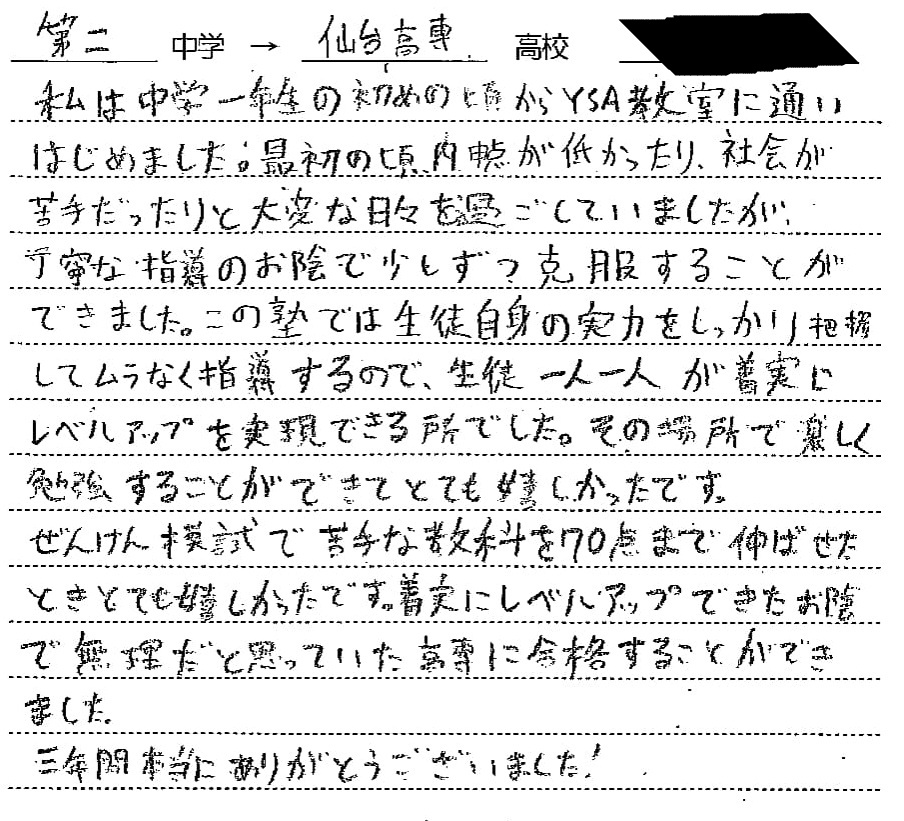 第二 中学 → 仙台高専 高校
私は中学一年生の初めの頃からYSA教室に通い
はじめました。最初の頃、内申点が低かったり、社会が
苦手だったりと大変な日々を過ごしていましたが、
丁寧な指導のお陰で少しずつ克服することが
できました。この塾では生徒自身の実力をしっかり把握
してムラなく指導するので、生徒一人一人が着実に
レベルアップを実現できる所でした。その場所で楽しく
勉強することができてとても嬉しかったです。
ぜんけん模試で苦手な教科を70点まで伸ばせた
ときとても嬉しかったです。着実にレベルアップできたお陰
で無理だと思っていた高専に合格することができ
ました。
三年間本当にありがとうございました!